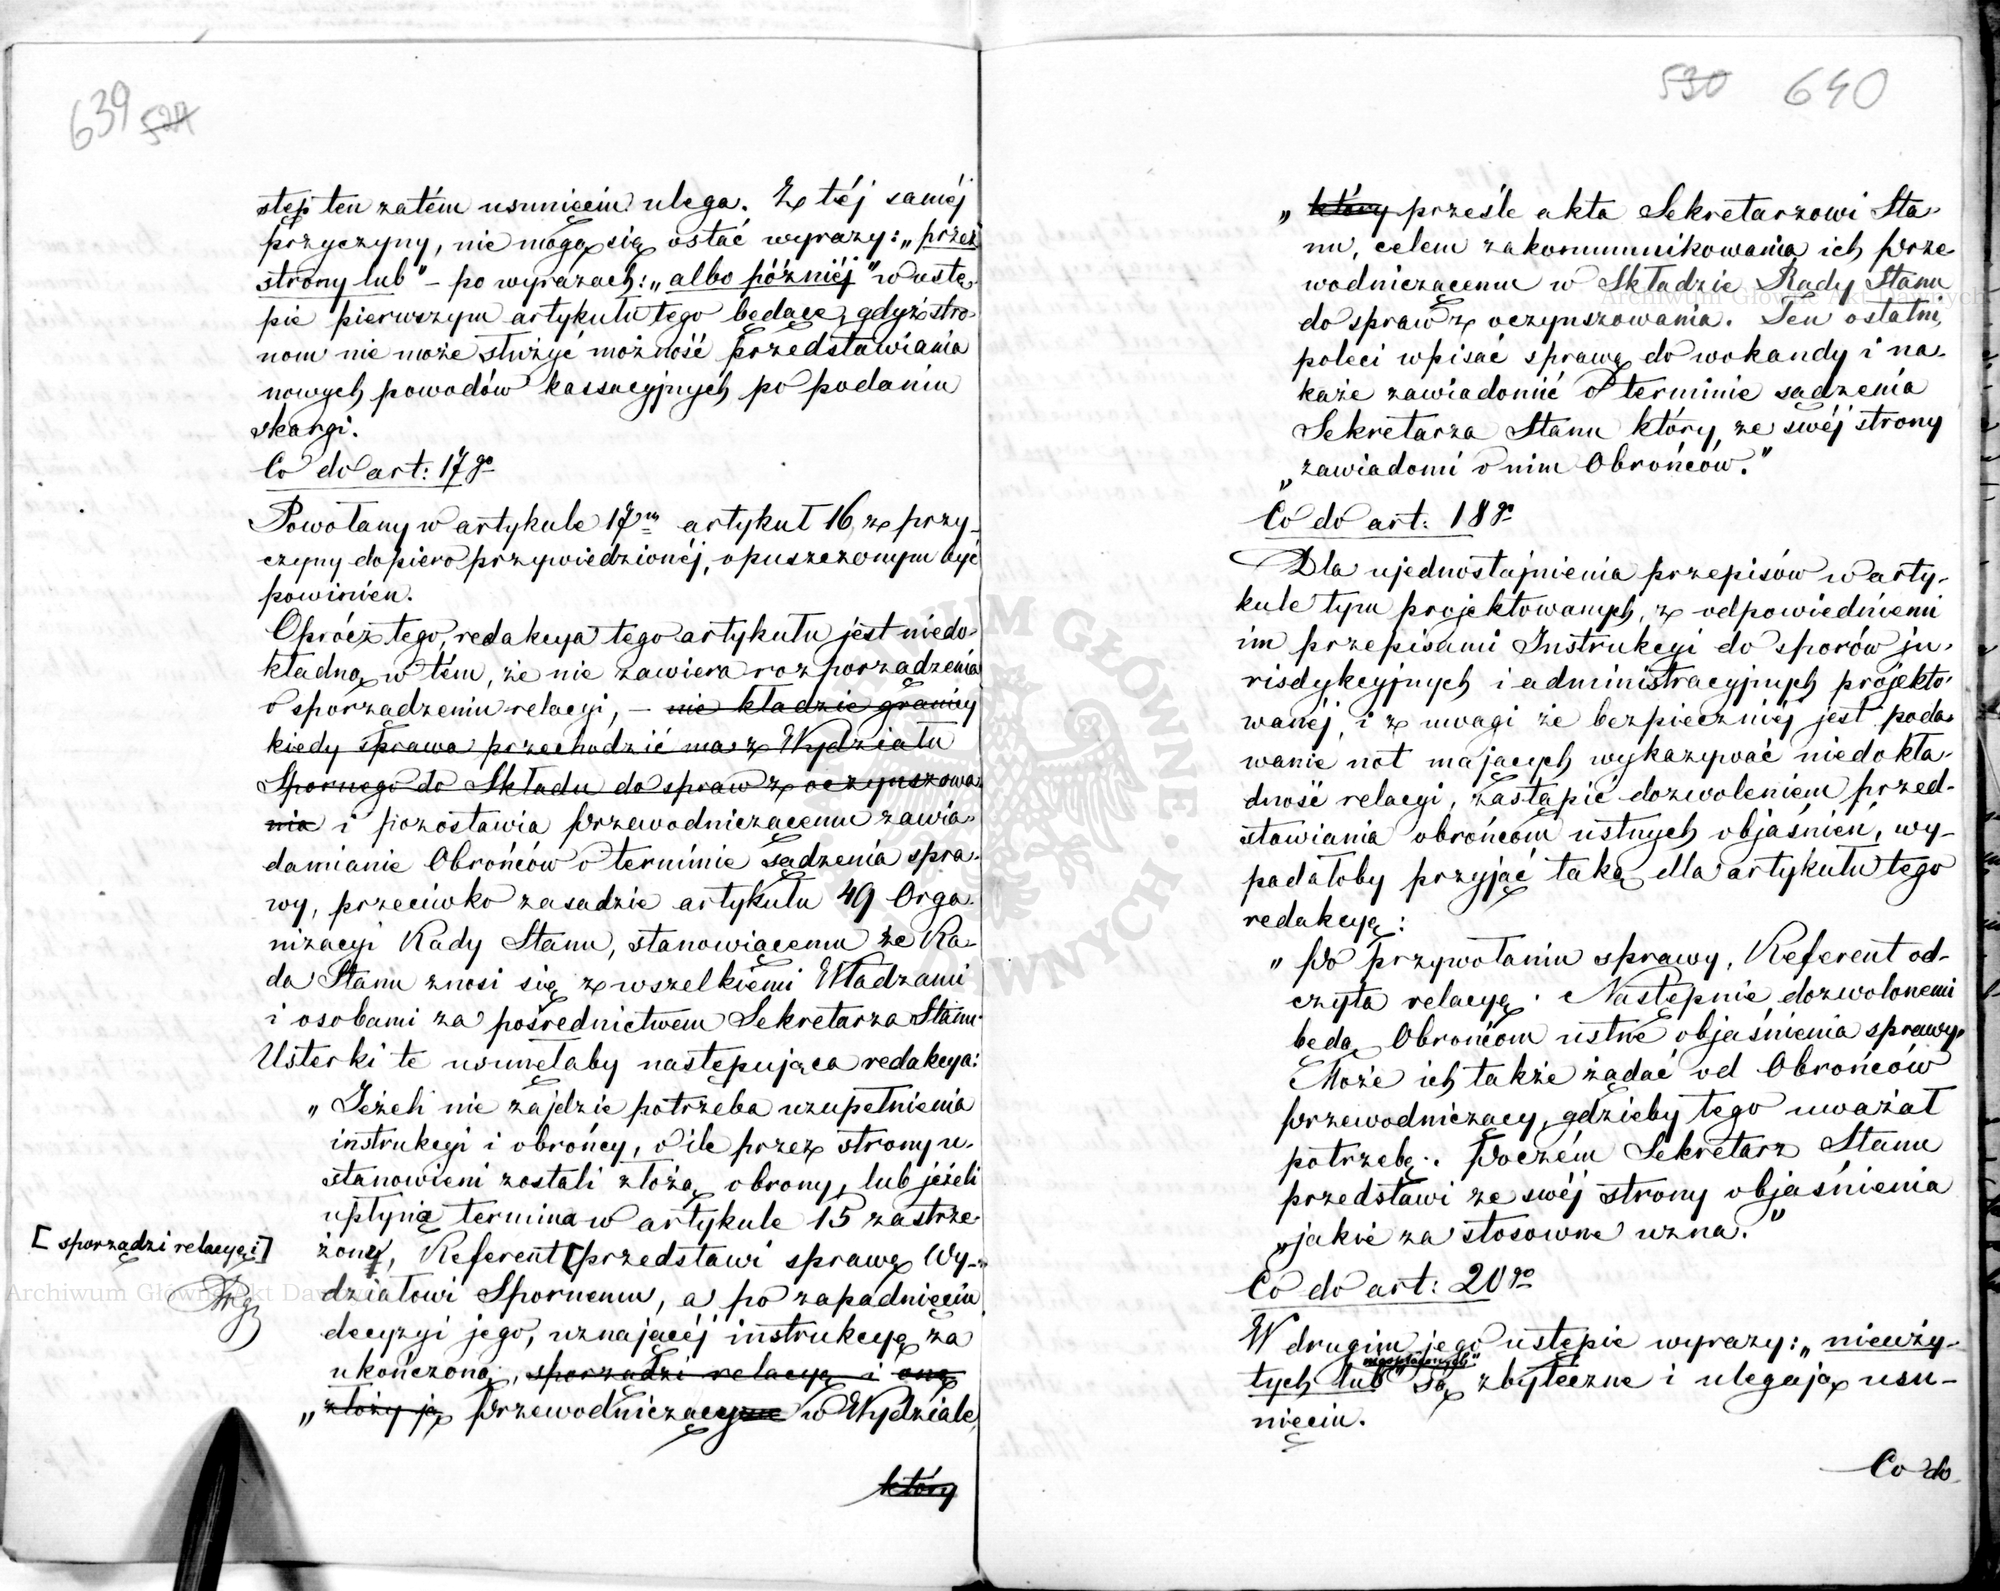 639 529
stęp ten zatém usunięciu ulega. Z téj saméj
przyczyny, nie mogą się ostać wyrazy: „przez
strony lub" – po wyrazach: „albo późniéj" w ustę-
pie pierwszym artykułu tego będące, gdyż stro-
nom nie może służyć możność przedstawiania
nowych powodów kassacyjnych po podaniu
skargi.
Co do art: 17go
Powołany w artykule 17m artykuł 16, z przy-
czyny dopiero przywiedzionéj, opuszczonym być
powinien.
Oprócz tego, redakcya tego artykułu jest niedo-
kładną w tém, że nie zawiera rozporządzenia
o sporządzeniu relacyi, – nie kładzie granicy
kiedy sprawa przechodzić ma z Wydziału
Spornego do Składu do spraw z oczynszowa-
nia i pozostawia Przewodniczącemu zawia-
damianie Obrońców o terminie sądzenia spra-
wy, przeciwko zasadzie artykułu 49 Orga-
nizacyi Rady Stanu, stanowiącemu że Ra-
da Stanu znosi się z wszelkiemi Władzami
i osobami za pośrednictwem Sekretarza Stanu.
Usterki te usunęłaby następująca redakcya:
„Jeżeli nie zajdzie potrzeba uzupełnienia
instrukcyi i obrońcy, o ile przez strony u-
stanowieni zostali złożą obrony, lub jeżeli
upłyną termina w artykule 15 zastrze-
żone, Referent [przedstawi sprawę Wy-
[sporządzi relacyę i]
działowi Spornemu, a po zapadnięciu
decyzyi jego, uznającéj instrukcyę za
ukończoną, sporządzi relacyą i oną
„złoży ją Przewodniczącym w Wydziale,
który
530 640
„który prześle akta Sekretarzowi Sta-
nu, celem zakommunikowania ich Prze-
wodniczącemu w Składzie Rady Stanu
do spraw z oczynszowania. Ten ostatni,
poleci wpisać sprawę do wokandy i na-
każe zawiadomić o terminie sądzenia
Sekretarza Stanu który, ze swéj strony
„zawiadomi o nim Obrońców."
Co do art: 18go
Dla ujednostajnienia przepisów w arty-
kule tym projektowanych, z odpowiedniemi
im przepisami Instrukcyi do sporów ju-
risdykcyjnych i administracyjnych projekto-
wanéj, i z uwagi że bezpieczniéj jest poda-
wanie not mających wykazywać niedokła-
dność relacyi, zastąpić dozwoleniem przed-
stawiania obrońcom ustnych objaśnień, wy-
padałoby przyjąć taką dla artykułu tego
redakcyą:
„Po przywołaniu sprawy, Referent od-
czyta relacyę. Następnie dozwolonemi
będą Obrońcom ustne objaśnienia sprawy.
Może ich także żądać od Obrońców
Przewodniczący, gdzieby tego uważał
potrzebę. Poczém Sekretarz Stanu
przedstawi ze swéj strony objaśnienia
„jakie za stosowne uzna."
Co do art: 20go
W drugim jego ustępie wyrazy: „nieuży-
tych lub" są zbyteczne i ulegają usu-
nięciu.
Co do
ARCHIWUM GŁÓWNE AKT DAWNYCH
Archiwum Główne Akt Dawnych
Archiwum Główne Akt Dawnych